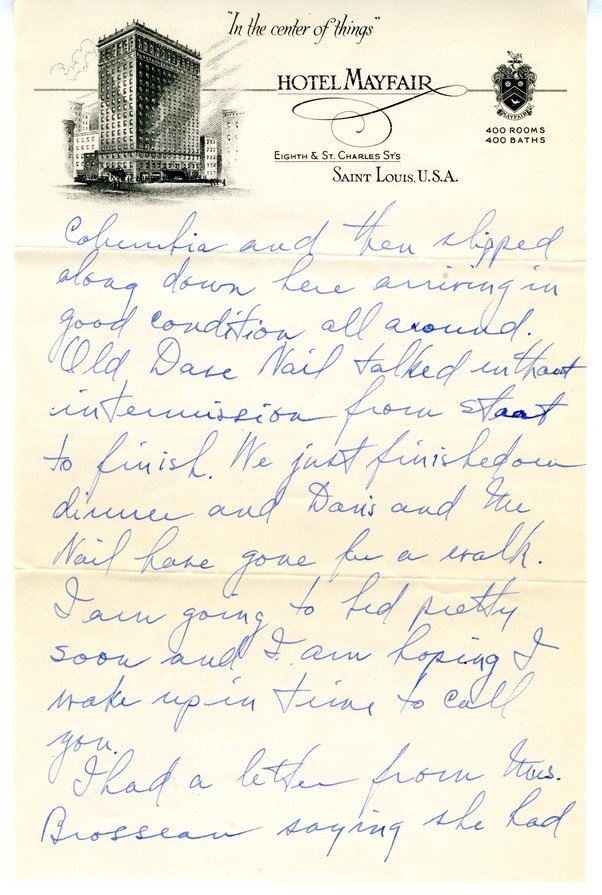 "In the center of things"
HOTEL MAYFAIR
EIGHTH & ST. CHARLES ST'S
SAINT LOUIS, U.S.A.
MAYFAIR
400 ROOMS
400 BATHS
Columbia and then slipped
along down here arriving in
good condition all around.
Old Dave Nail talked without
intermission from start
to finish. We just finished our
dinner and Davis and Mr
Nail have gone for a walk.
I am going to bed pretty
soon and I am hoping I
wake up in time to call
you.
I had a letter from Mrs.
Brosseau saying she had